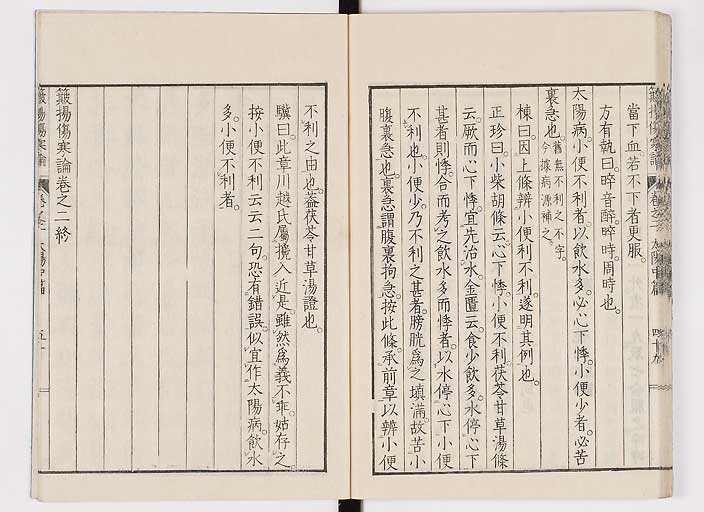 當下血若不下者更服。
方有執曰。晬音醉。晬時。周時也。
太陽病。小便不利者。以飲水多。必心下悸。小便少者。必苦
裏急也。舊無不利之不字。
今據病源補之。
棟曰。因上條辨小便利不利。遂明其例也。
正珍曰。小柴胡條云。心下悸。小便不利。茯苓甘草湯條
云。厥而心下悸。宜先治水。金匱云。食少飲多。水停心下。
甚者則悸。合而考之。飲水多而悸者。以水停心下。小便
不利也。小便少。乃不利之甚者。膀胱爲之填滿。故苦小
腹裏急也。裏急謂腹裏拘急。按此條。承前章以辨小便
不利之由也。蓋茯苓甘草湯證也。
驥曰。此章川越氏屬攙入近是。雖然爲義不乖。姑存之。
按小便不利云云二句。恐有錯誤。似宜作太陽病。飲水
多。小便不利者。
簸揚傷寒論卷之二終